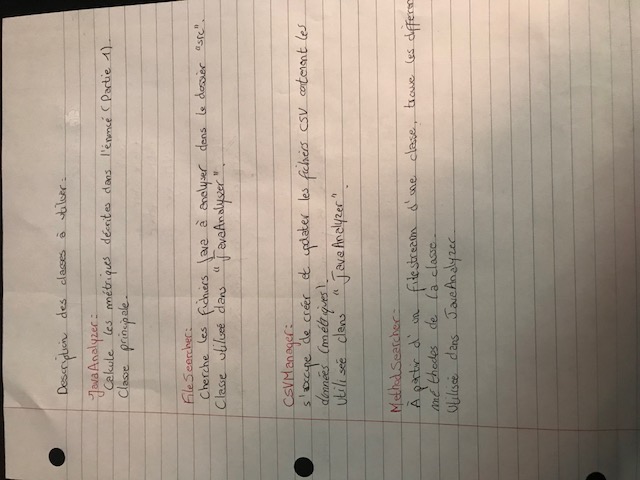 Description des classes à utiliser:
JavaAnalyzer:
Calcule les métriques décrites dans l'énoncé (Partie 1).
Classe principale.
FileSearcher:
Cherche les fichiers Java à analyser dans le dossier "src".
Classe utilisée dans "JavaAnalyser".
CSVManager:
s'occupe de créer et updater les fichiers CSV contenant les
données (métriques).
Utilisée dans "JavaAnalyzer".
MethodSearcher:
À partir d'un filestream d'une classe, trouve les différen
méthodes de la classe.
Utilisée dans JavaAnalyzer.